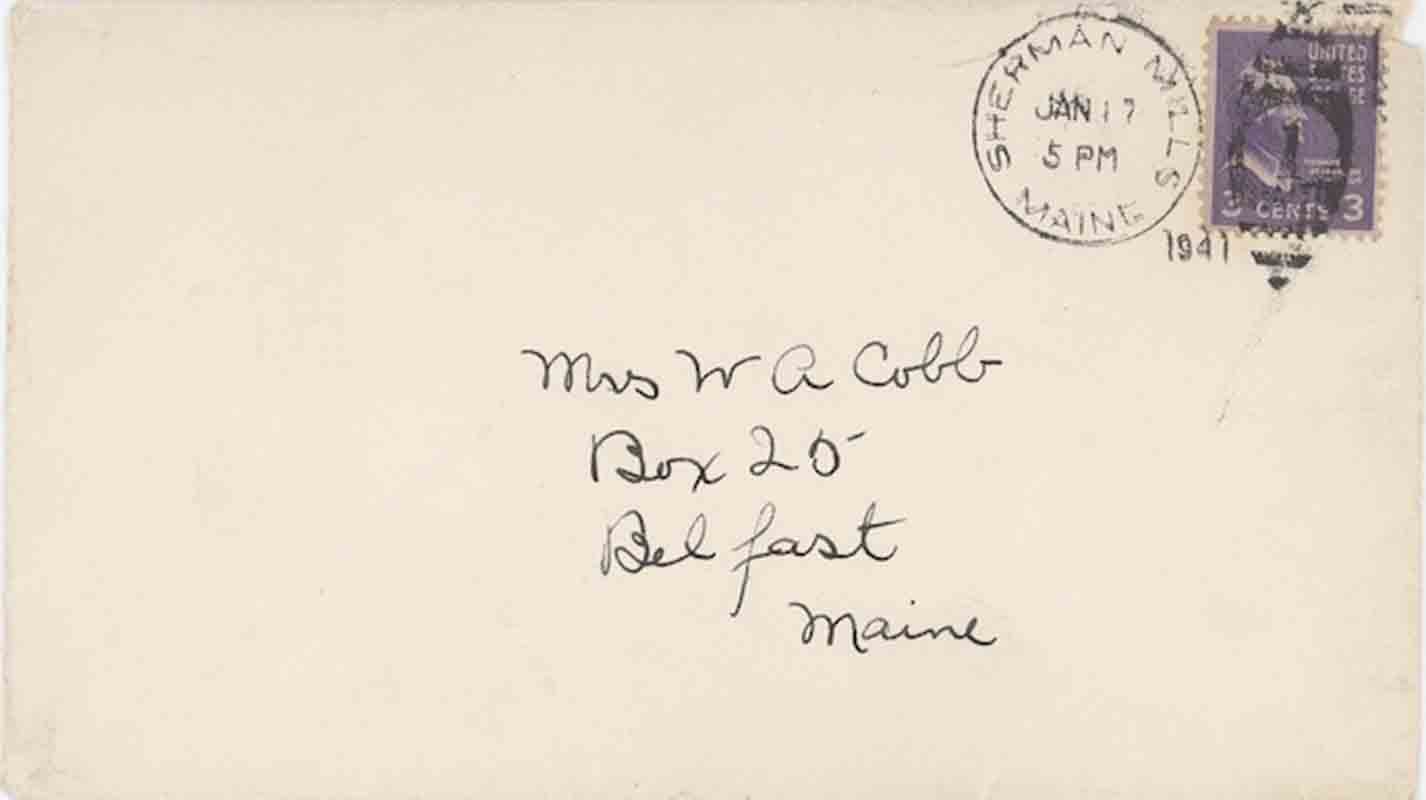 SHERMAN MILLS
JAN 17
5 PM
MAINE
1941
UNITED
3 CENTS 3
Mrs W A Cobb
Box 25
Belfast
Maine